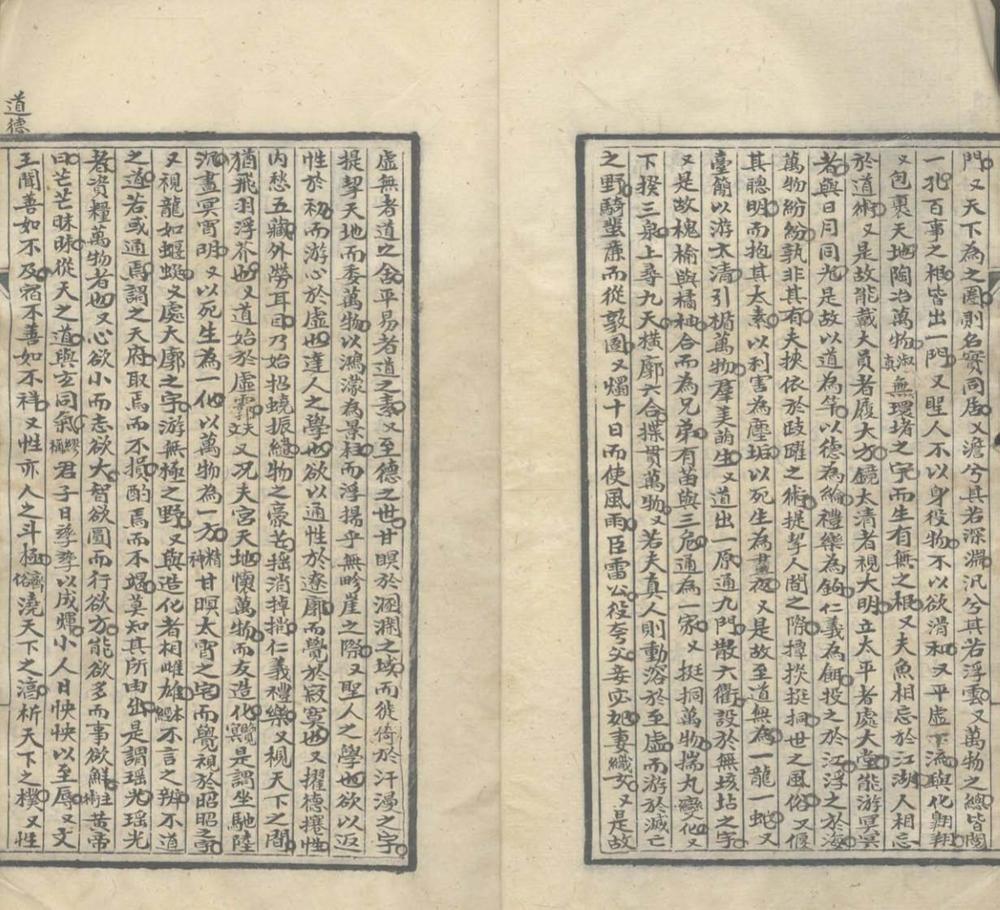 門又天下為之圈則名實同居又澹兮其若深淵汎兮其若浮雲又萬物之總皆閱
一孔百事之根皆出一門又聖人不以身役物不以欲滑和又平虛下流與化翱翔
又包裹天地陶冶萬物淑真無環堵之宇而生有無之根又夫魚相忘於江湖人相忘
於道術又是故能戴大員者履大方鏡太清者視大明立太平者處大堂能游冥冥
者與日月同光是故以道為竿以德為綸禮樂為鉤仁義為餌投之於江浮之於海
萬物紛紛孰非其有夫挾依於跂躍之術提挈人間之際撢掞挺挏世之風俗又偃
其聰明而抱其太素以利害為塵垢以死生為晝夜又是故至道無為一龍一蛇又
臺簡以游太清引楯萬物羣美萌生又道出一原通九門散六衢設於無垓坫之宇
又是故槐榆與橘柚合而為兄弟有苗與三危通為一家又挺挏萬物揣丸變化又
下揆三泉上尋九天橫廓六合揲貫萬物又若夫真人則動溶於至虛而游於滅亡
之野騎蜚廉而從敦圄又燭十日而使風雨臣雷公役夸父妾宓妃妻織女又是故
虛無者道之舍平易者道之素又至德之世甘瞑於溷澖之域而徙倚於汗漫之宇
提挈天地而委萬物以鴻濛為景柱而浮揚乎無畛崖之際又聖人之學也欲以返
性於初而游心於虛也達人之學也欲以通性於遼廓而覺於寂寞也又擢德攓性
內愁五藏外勞耳目乃始招蟯振繾物之豪芒搖消掉捎仁義禮樂又視天下之間
猶飛羽浮芥也又道始於虛霩天文又況夫宮天地懷萬物而友造化覽冥是謂坐馳陸
沉晝冥宵明又以死生為一化以萬物為一方精神甘暝太宵之宅而覺視於昭昭之宇
又視龍如蝘蜓又處大廓之宇游無極之野又與造化者相雌雄本經不言之辨不道
之道若或通焉謂之天府取焉而不損酌焉而不竭莫知其所由出是謂瑤光瑤光
者資糧萬物者也又心欲小而志欲大智欲圓而行欲方能欲多而事欲鮮主術黄帝
曰芒芒昧昧從天之道與玄同氣繆稱君子日孳孳以成煇小人日怏怏以至辱又文
王聞善如不及宿不善如不祥又性亦人之斗極齊俗澆天下之淳析天下之樸又性
道德